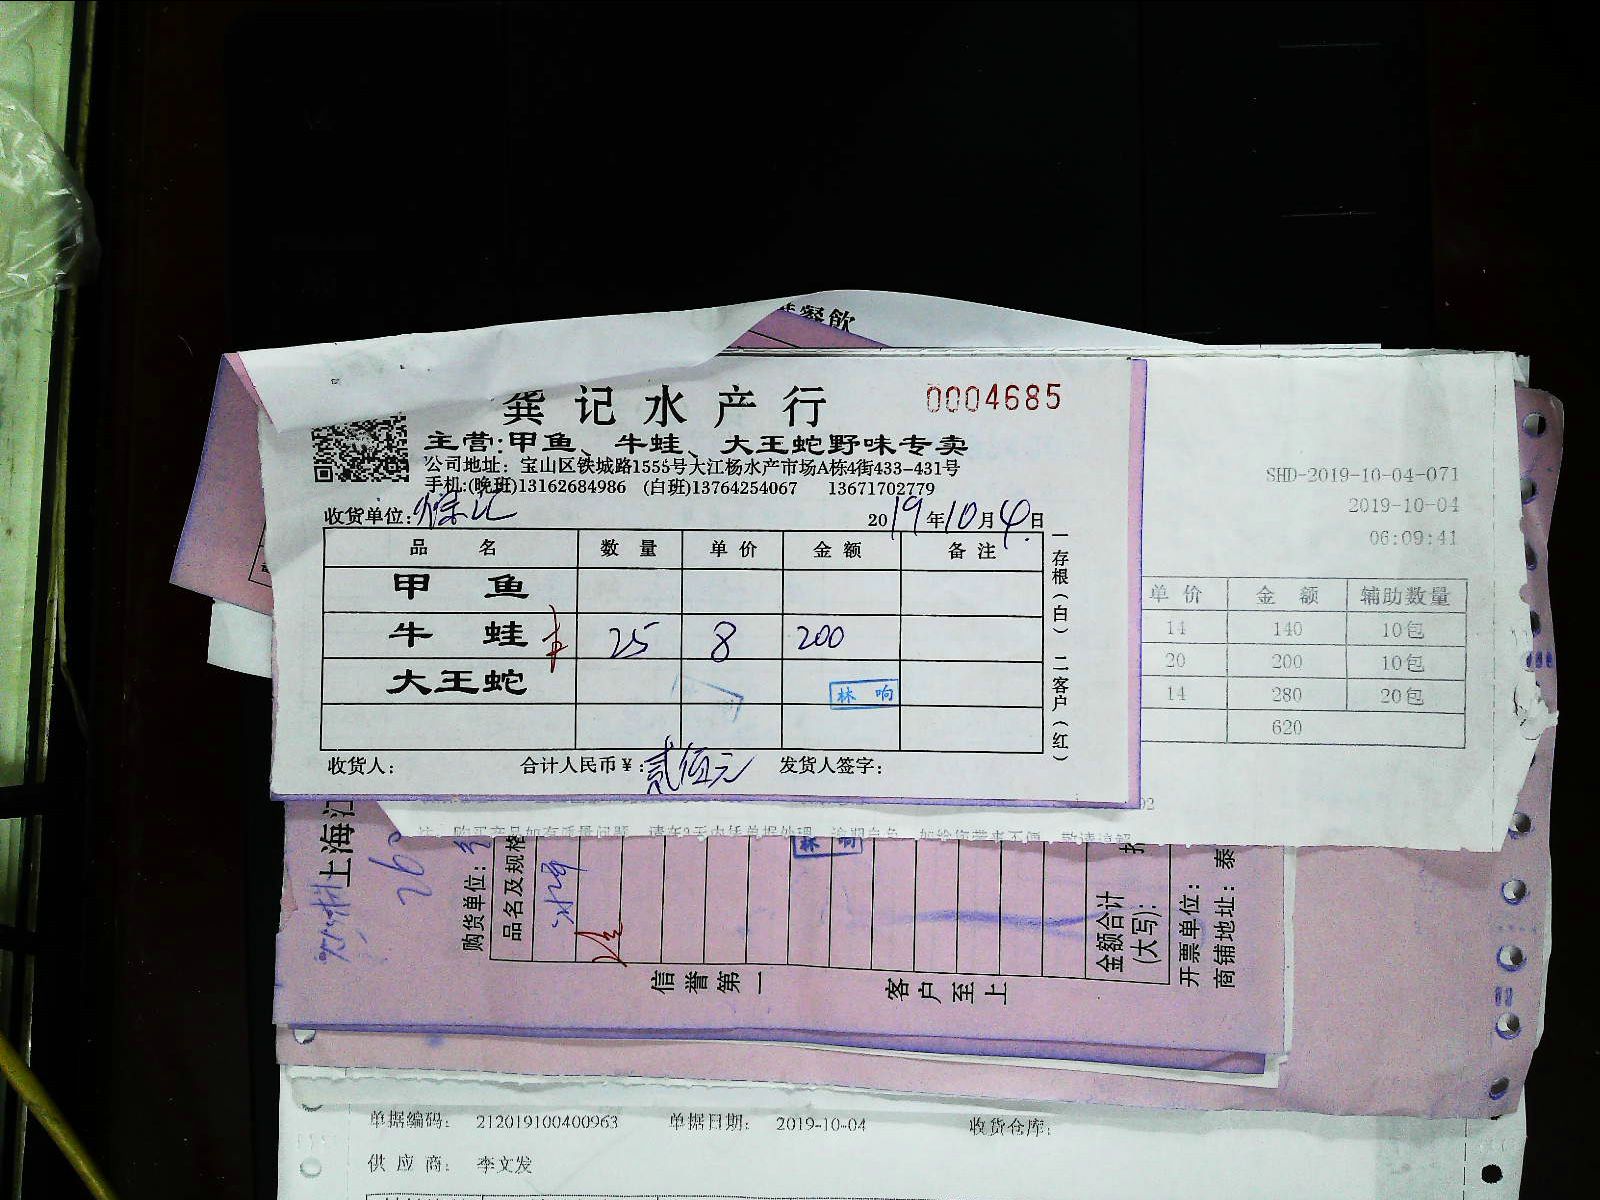 餐飲
龚记水产行
0004685
主营:甲鱼、牛蛙、大王蛇野味专卖
公司地址：宝山区铁城路1555号大江杨水产市场A栋4街433-431号
手机:(晚班)13162684986 (白班)13764254067 13671702779
收货单位: 2019年10月4日
品名 数量 单价 金额 备注
甲鱼
牛蛙 25 8 200
大王蛇
林响
收货人： 合计人民币￥: 贰佰元 发货人签字：
一存根(白) 二客户(红)
SHD-2019-10-04-071
2019-10-04
06:09:41
单价 金额 辅助数量
14 140 10包
20 200 10包
14 280 20包
620
92
上海江
260
购货单位：
品名及规格
林响
金额合计
(大写)：
开票单位：
商铺地址：泰
信誉第一 客户至上
单据编码： 212019100400963 单据日期： 2019-10-04 收货仓库：
供应商： 李文发